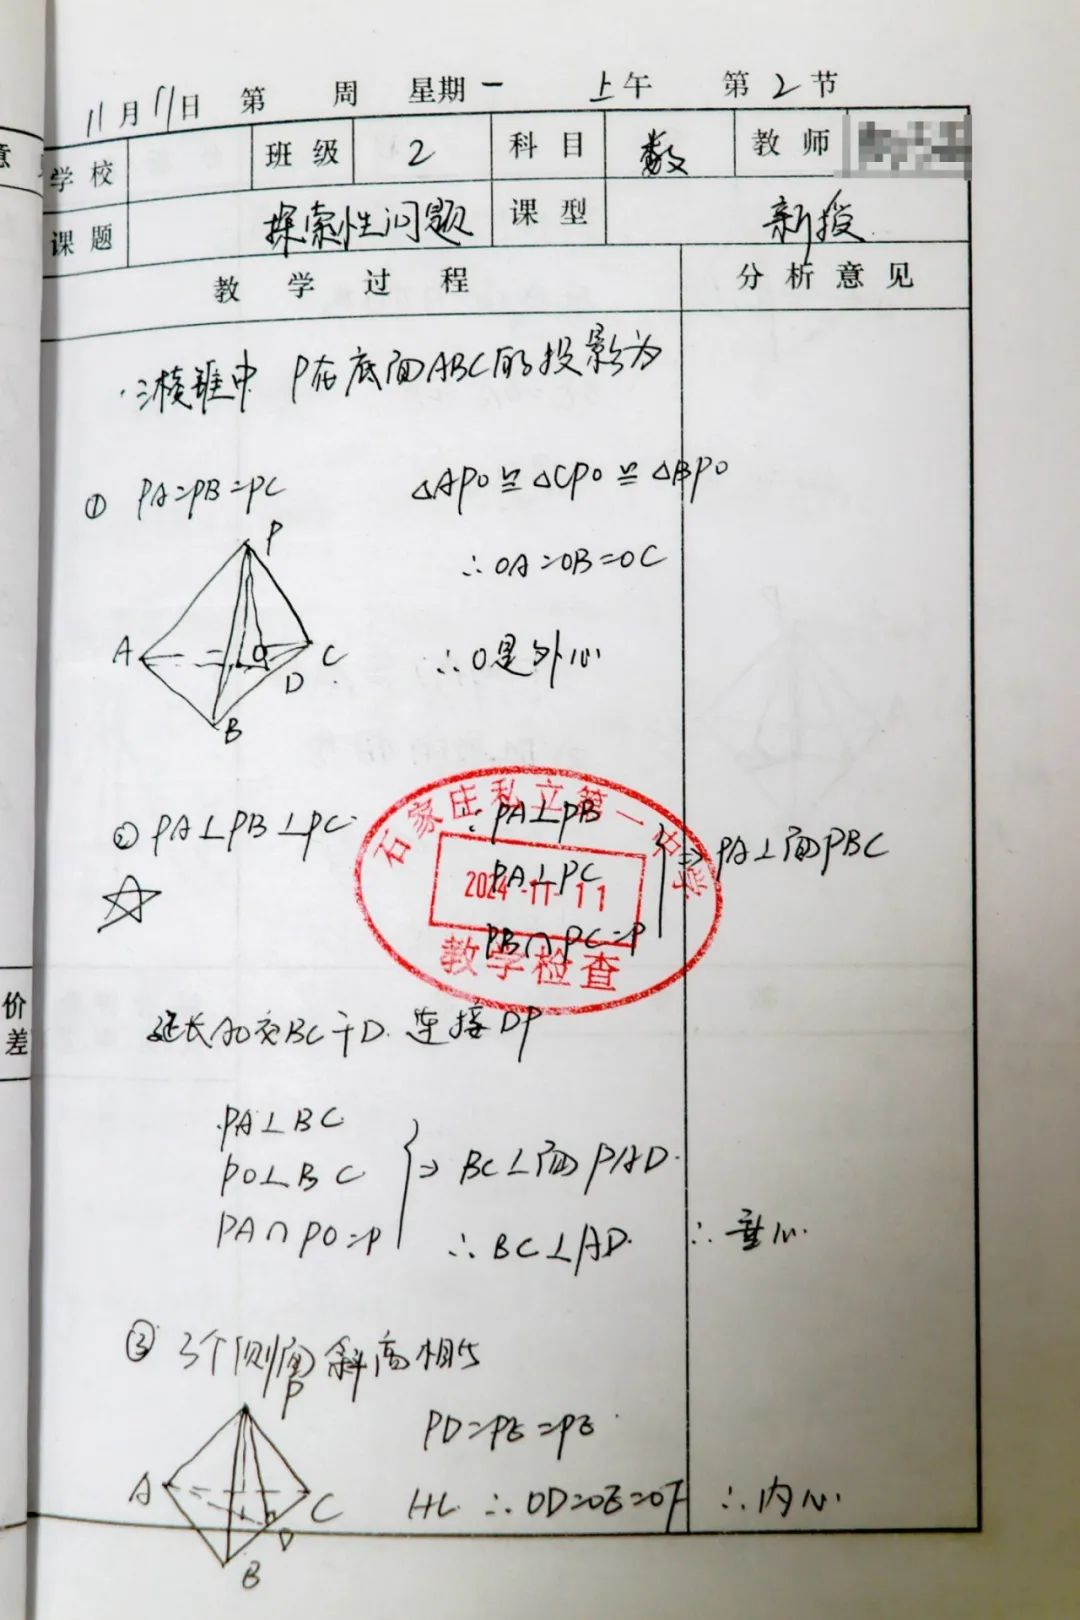 11月11日 第 周 星期一 上午 第2节
学校 班级 2 科目 数 教师
课题 探索性问题 课型 新授
教学过程 分析意见
三棱锥中 P在底面ABC的投影为
① PA=PB=PC △APO≌△CPO≌△BPO
P
∴OA=OB=OC
A O C ∴O是外心
D
B
石家庄私立第一中学
② PA⊥PB⊥PC ∵PA⊥PB
PA⊥PC ⇒PA⊥面PBC
2024-11-11
PB∩PC=P
教学检查
价
差
延长AO交BC于D. 连接DP
PA⊥BC
PO⊥BC ⇒ BC⊥面PAD.
PA∩PO=P ∴BC⊥AD. ∴垂心.
③ 3个侧面斜高相等
P
PD=PE=PE
A C HL ∴OD=OE=OF ∴内心.
D
B